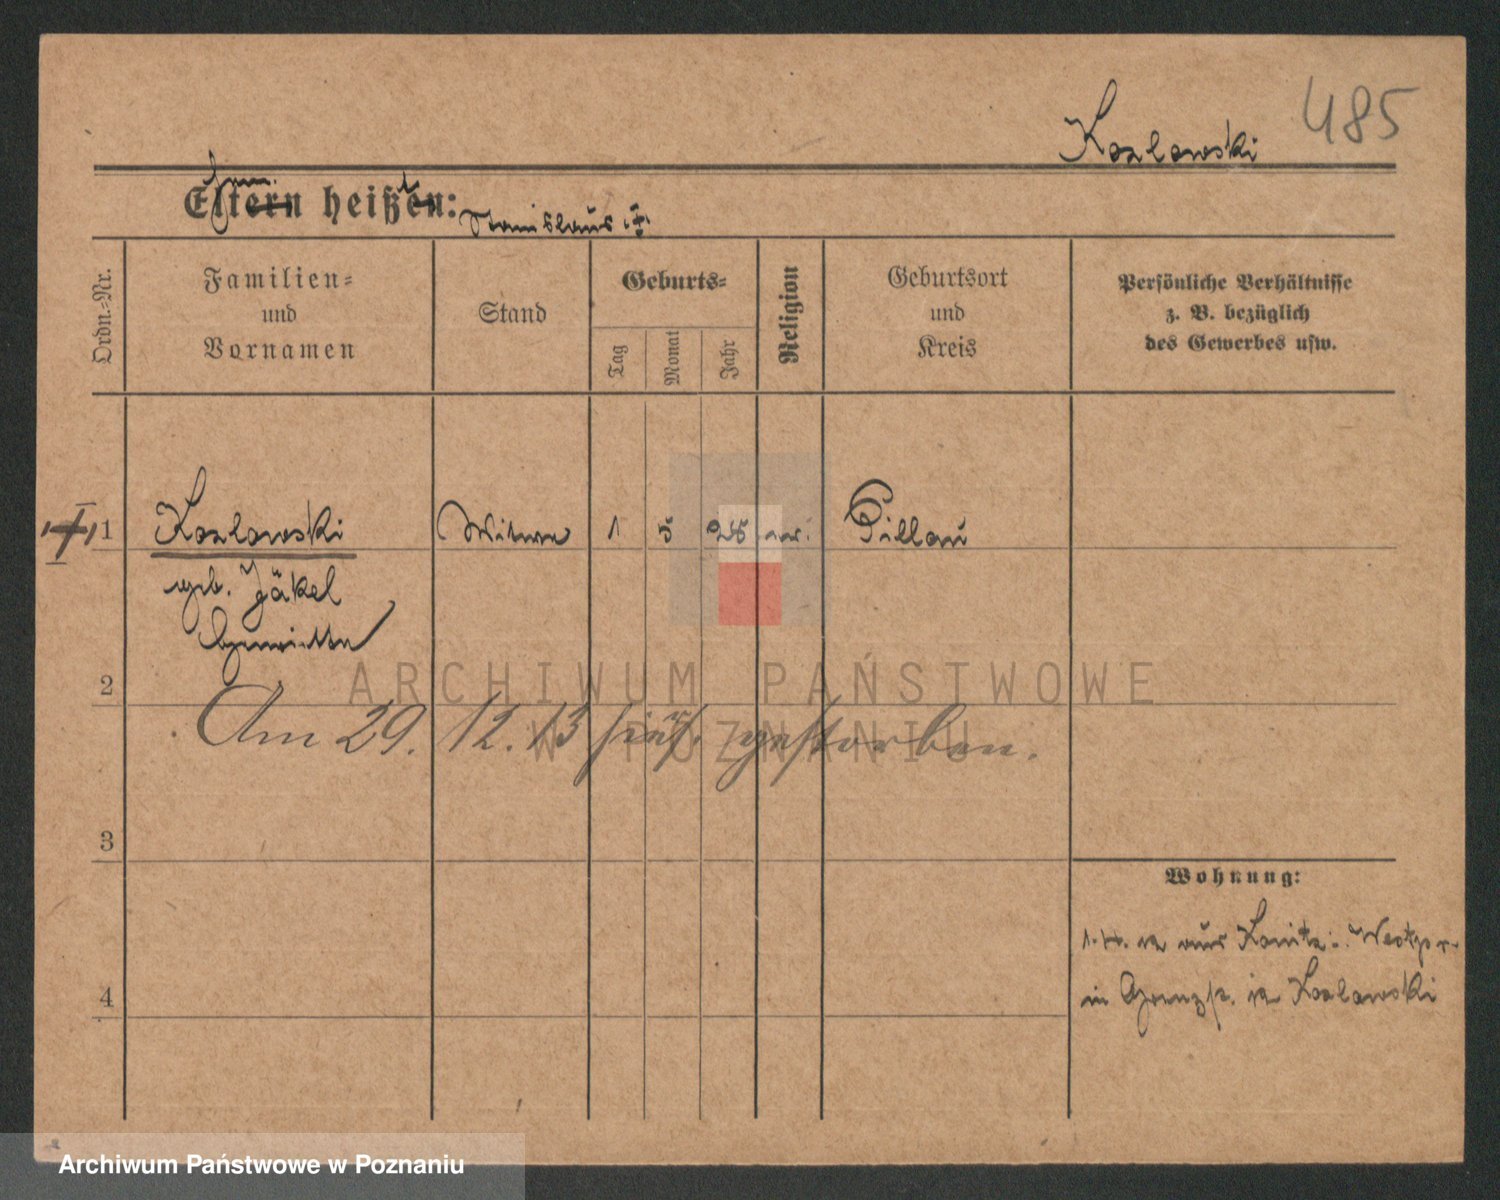 485
Kozlowski
Eltern heißen:
Stanislaus
Ordn.-Nr.
Familien-
und
Vornamen
Stand
Geburts-
Tag
Monat
Jahr
Religion
Geburtsort
und
Kreis
Persönliche Verhältnisse
z. B. bezüglich
des Gewerbes usw.
1 Kozlowski Witwe 1 5 28 Pillau
geb. Jäkel
Henriette
2
Am 29. 12. 13 hier gestorben.
3
4
Wohnung:
aus Konitz Westpr
in Kozlowski
ARCHIWUM PAŃSTWOWE
W POZNANIU
Archiwum Państwowe w Poznaniu